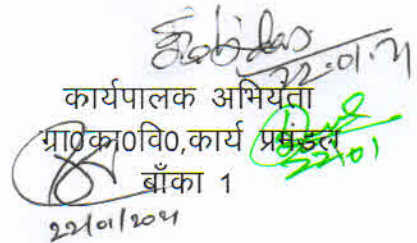 22.01.21
कार्यपालक अभियंता
ग्रा0का0वि0,कार्य प्रमंडल
22.01
बाँका 1
22/01/2021